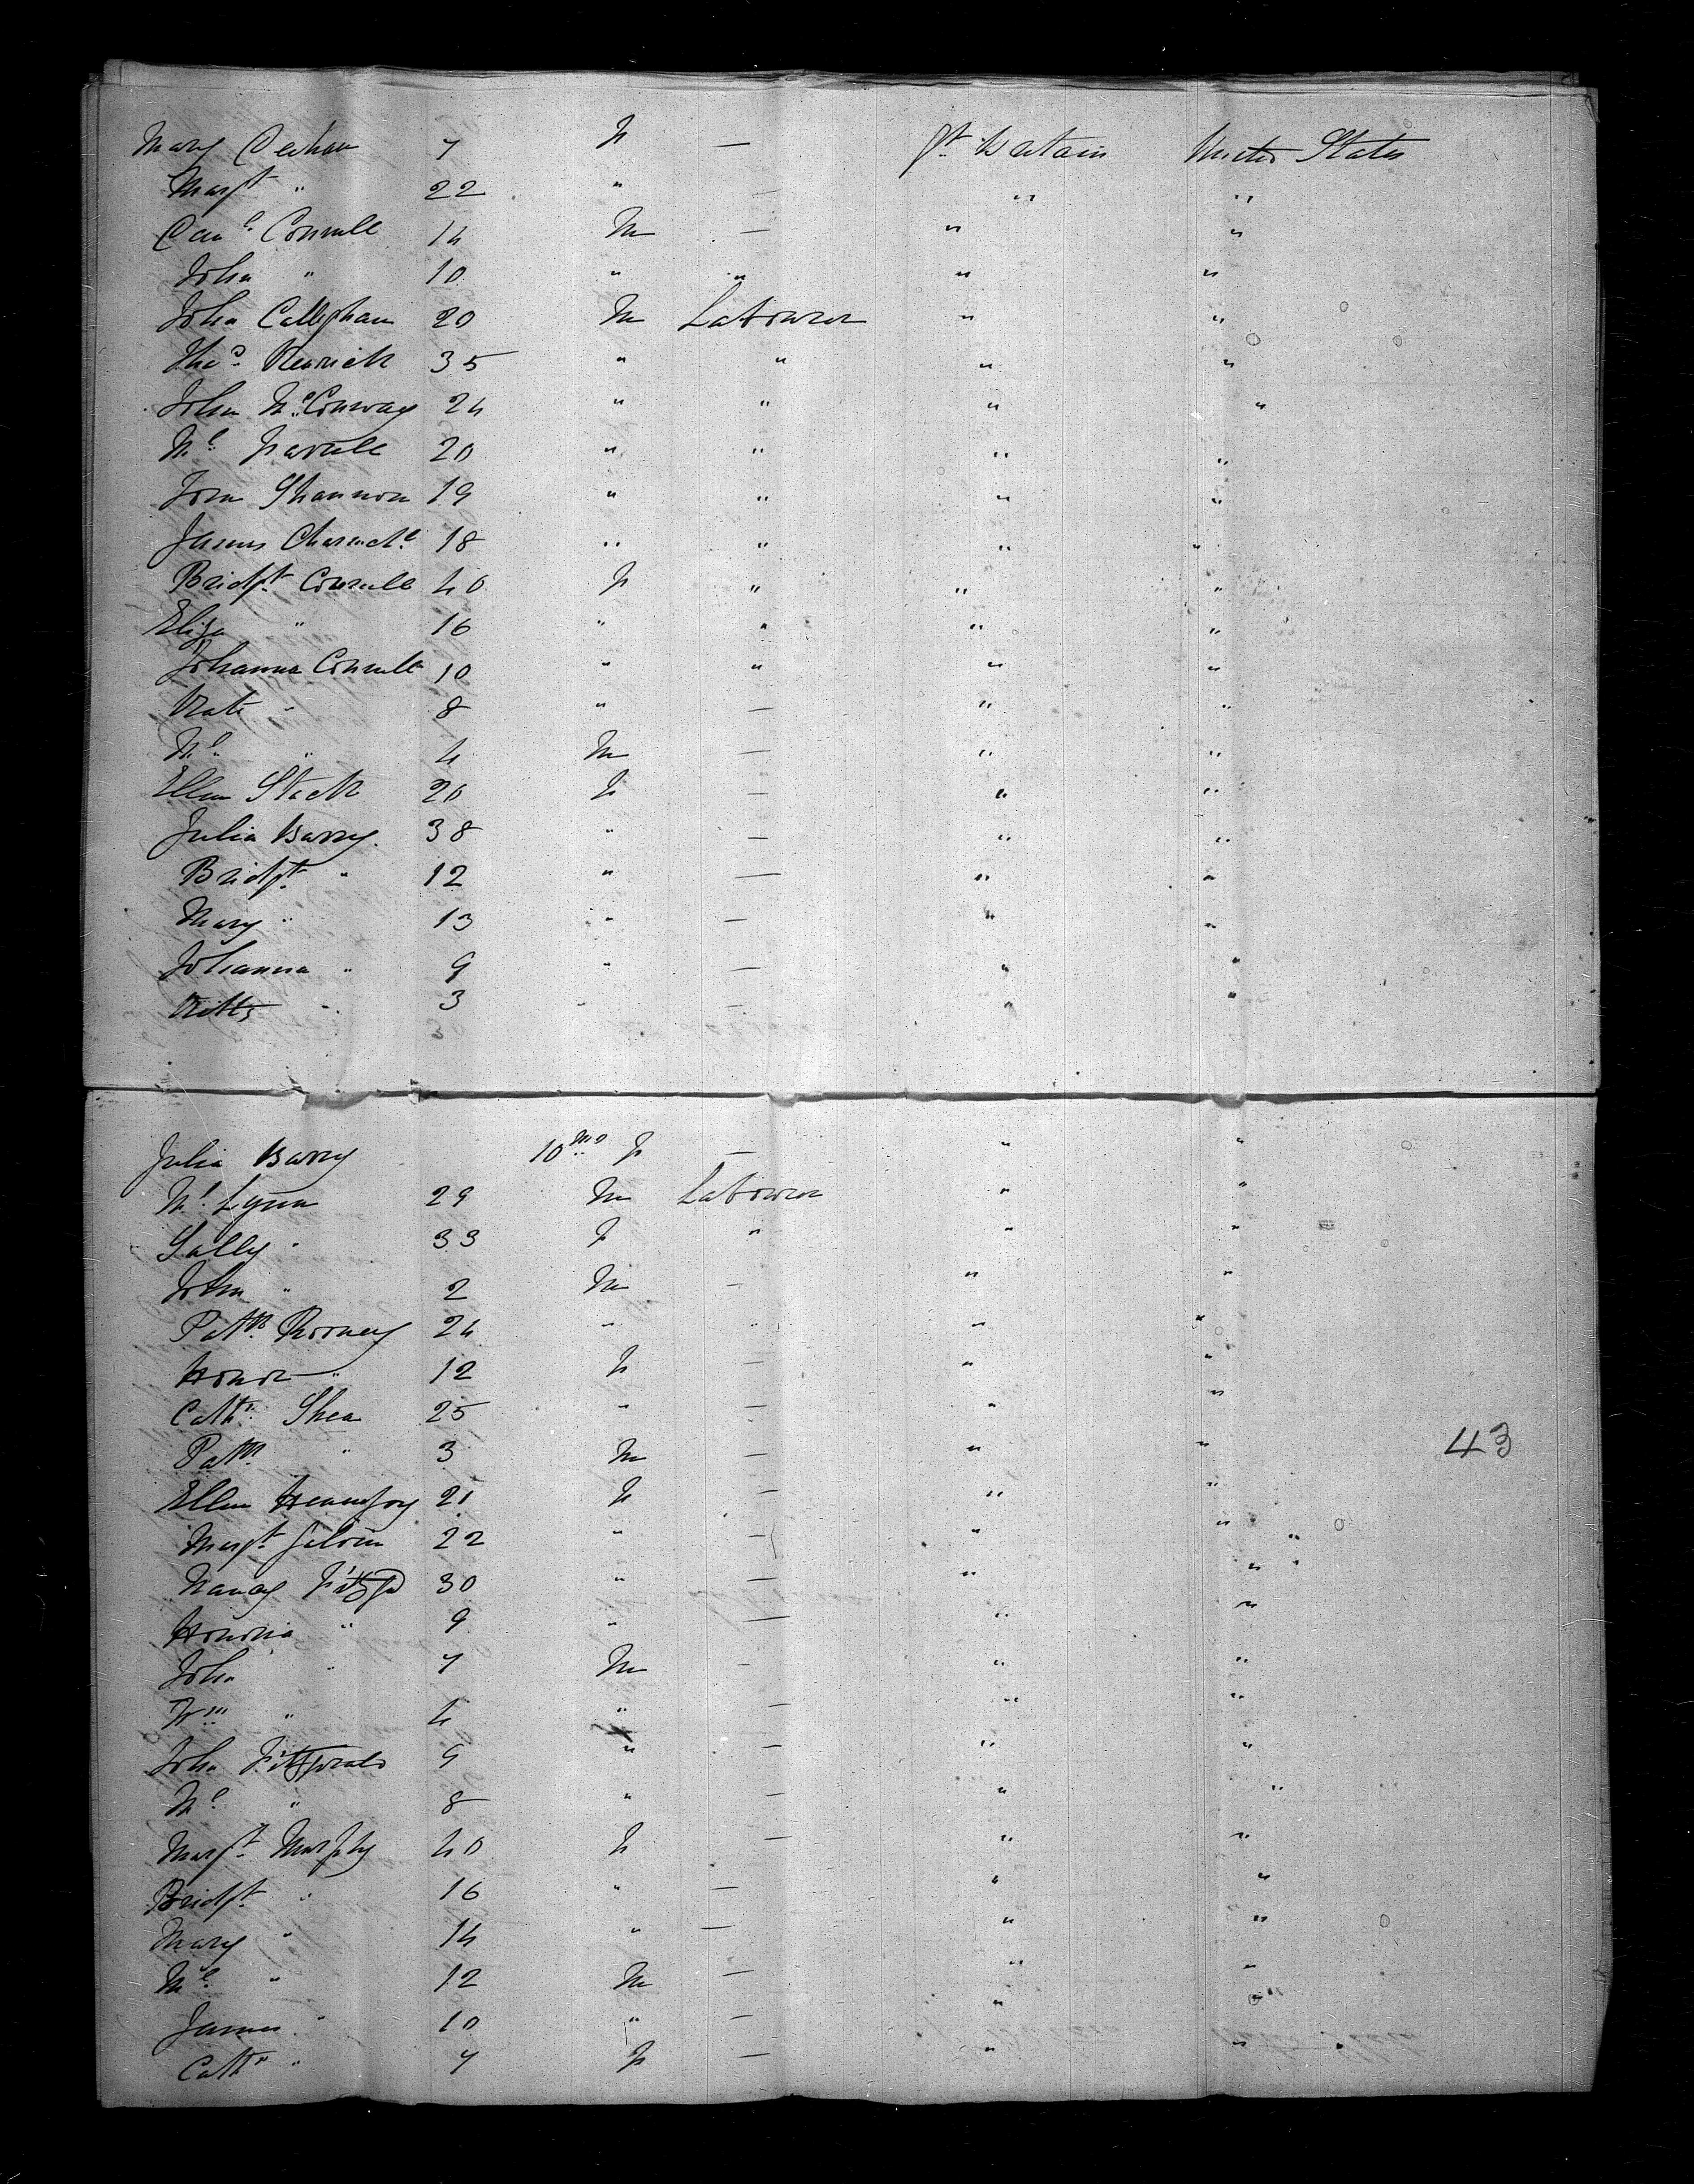 Mary 7 F — Gt. Britain United States
Margt " 22 " — " "
Danl. Connell 14 M — " "
John " 10 " " " "
John Calleghan 20 M Labourer " "
Thos. Kenrick 35 " " " "
John McConway 24 " " " "
Ml. Farrell 20 " " " "
Shannon 19 " " " "
James 18 " " " "
Bridgt. Connell 40 F " " "
Eliza " 16 " " " "
Johanna Connell 10 " " " "
Kate " 8 " — " "
Ml. " 4 M — " "
Ellen Stack 20 F — " "
Julia Barry. 38 " — " "
Bridgt. " 12 " — " "
Mary " 13 " — " "
Johanna " 9 " — " "
Kitty " 3 " — " "
Julia Barry 10 mo F — " "
Ml. Lynn 29 M Labourer " "
Sally " 33 F " " "
John " 2 M — " "
Patk. Rooney 24 " " " "
Honor " 12 F — " "
Cathn. Shea 25 " — " "
Patk. " 3 M — " "
43
Ellen Hennesy 21 F — " "
Margt. Galvin 22 " — " "
Nancy Fitzgd 30 " — " "
Honoria " 9 " — " "
John " 7 M — " "
Wm " 4 " — " "
John Fitzgerald 9 " — " "
Ml. " 8 " — " "
Margt. Murphy 40 F — " "
Bridgt. " 16 " — " "
Mary " 14 " — " "
Ml. " 12 M — " "
James " 10 " — " "
Cathn " 7 F — " "